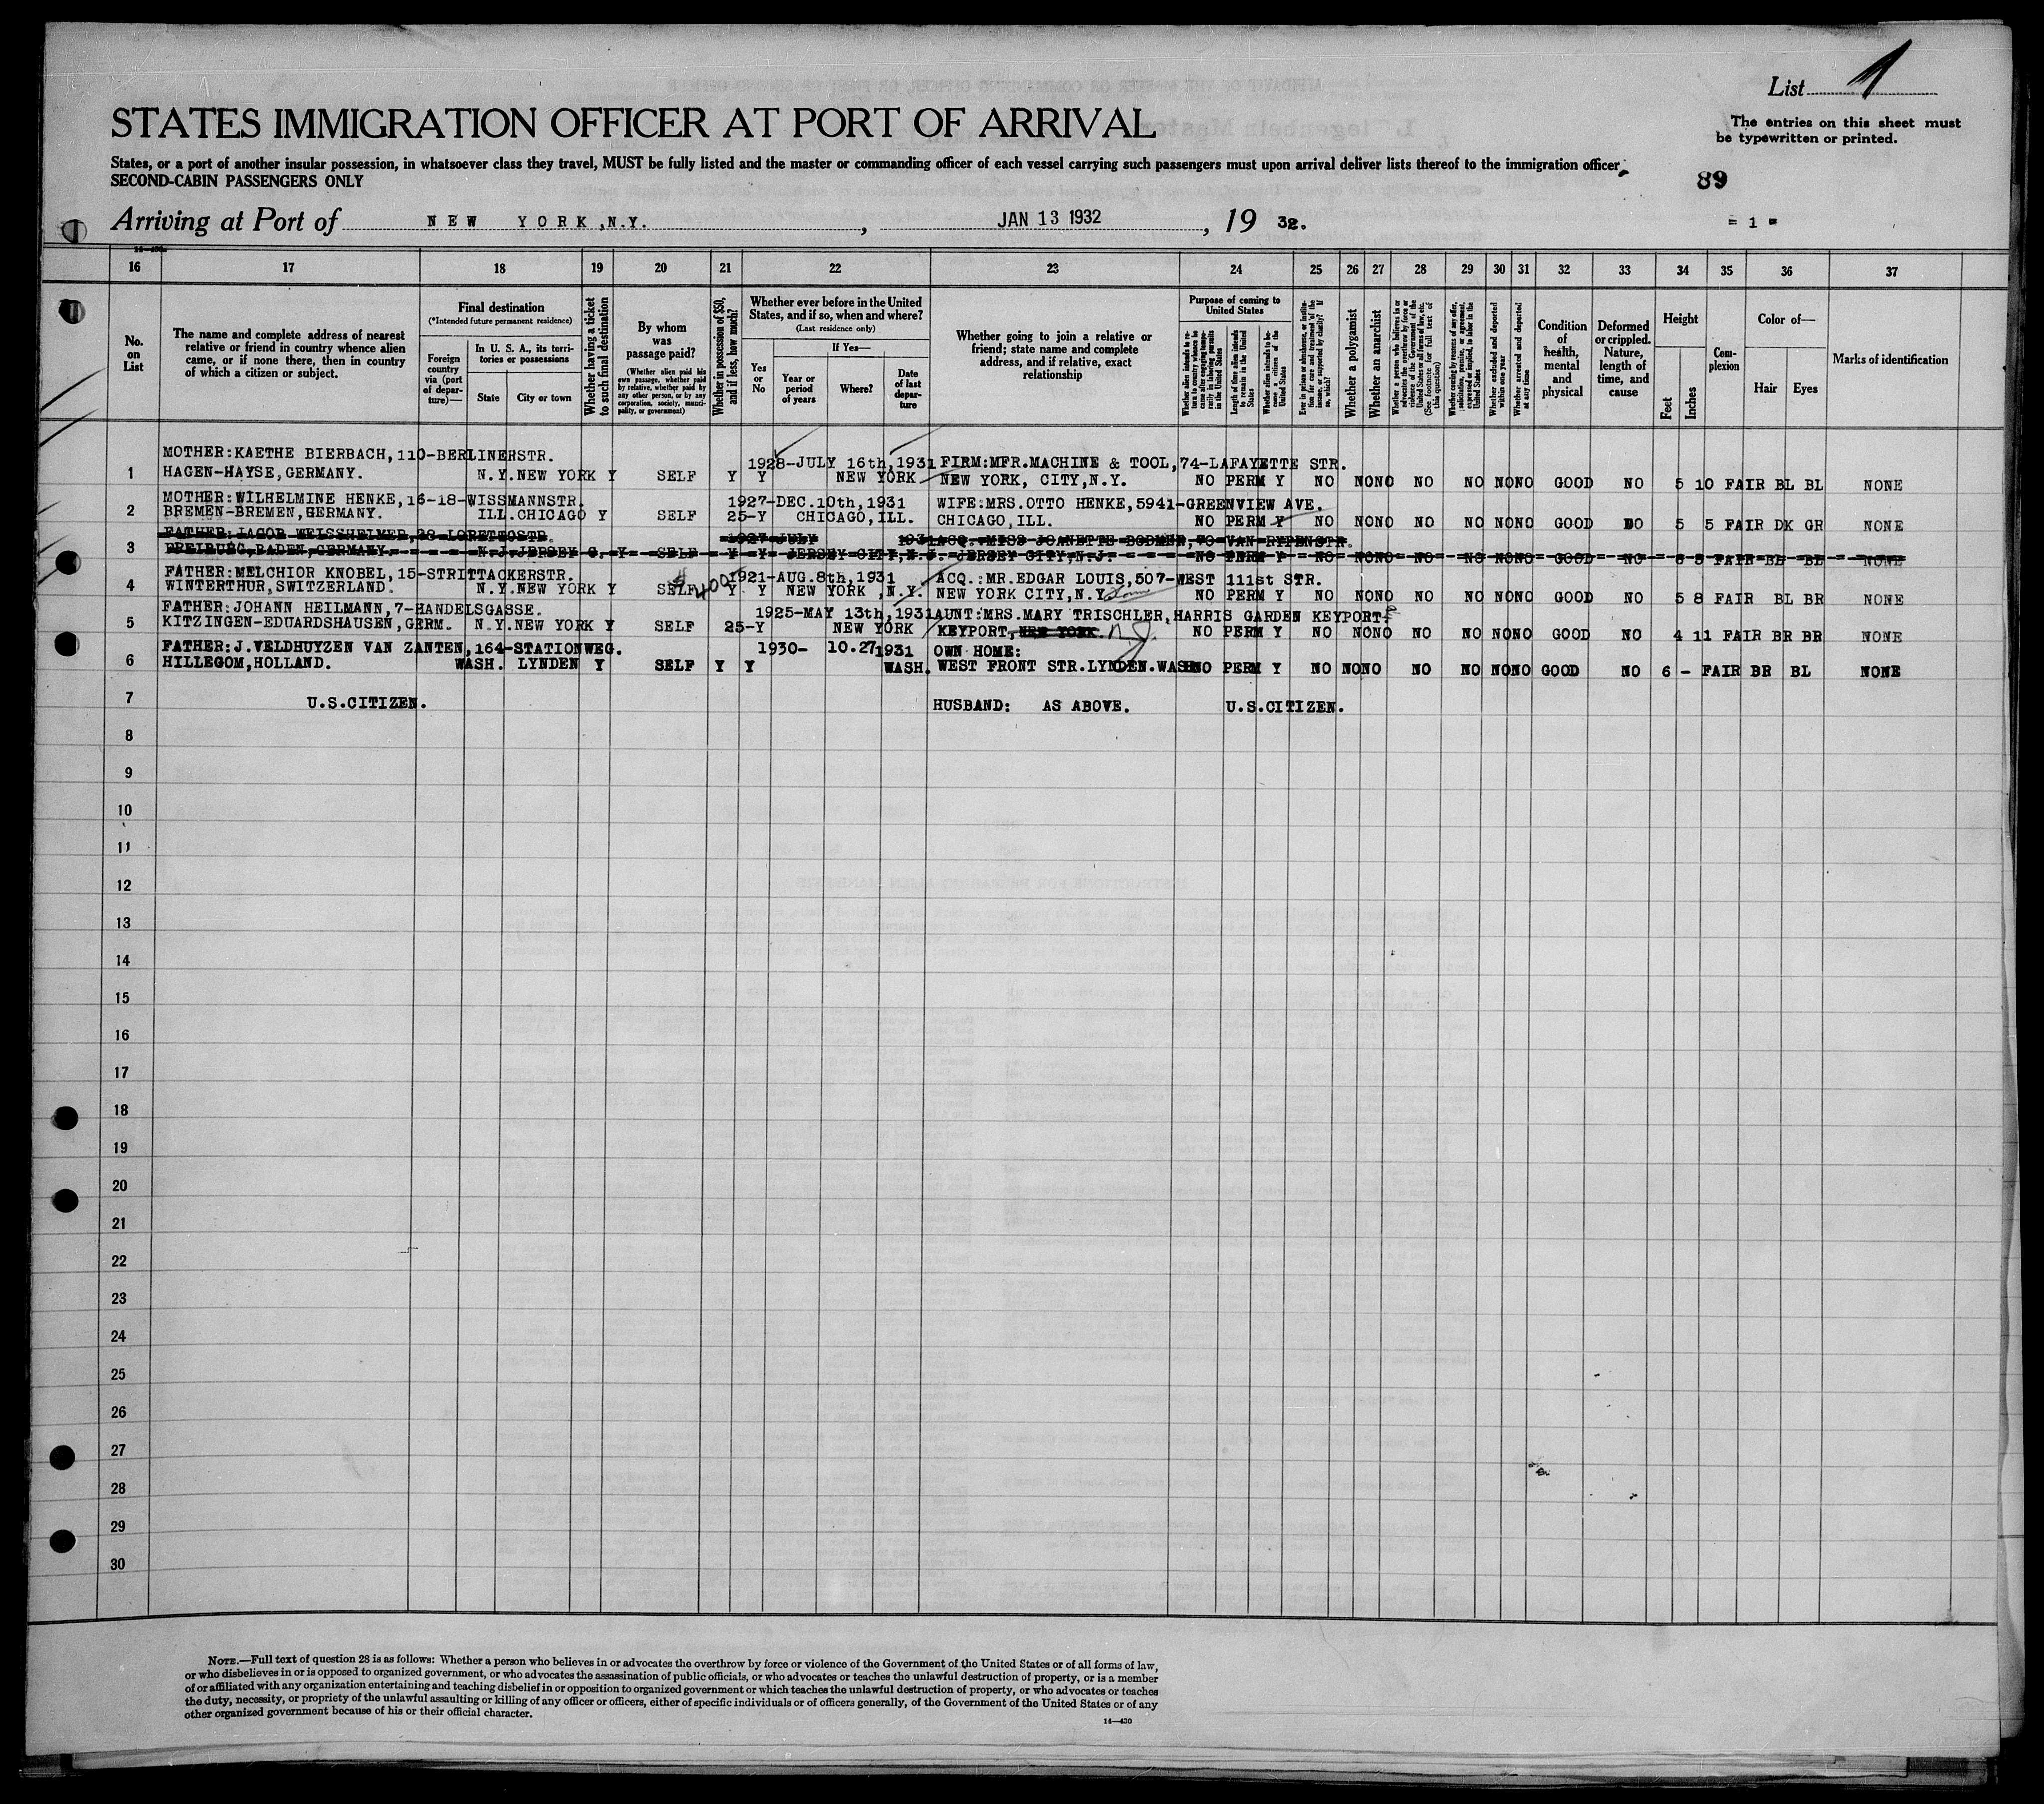 List 1
STATES IMMIGRATION OFFICER AT PORT OF ARRIVAL
The entries on this sheet must
be typewritten or printed.
States, or a port of another insular possession, in whatsoever class they travel, MUST be fully listed and the master or commanding officer of each vessel carrying such passengers must upon arrival deliver lists thereof to the immigration officer
SECOND-CABIN PASSENGERS ONLY
89
Arriving at Port of NEW YORK,N.Y. , JAN 13 1932 , 19 32.
- 1 -
16 17 18 19 20 21 22 23 24 25 26 27 28 29 30 31 32 33 34 35 36 37
No. on List
The name and complete address of nearest relative or friend in country whence alien came, or if none there, then in country of which a citizen or subject.
Final destination
(*Intended future permanent residence)
Foreign country via (port of departure)—
In U. S. A., its territories or possessions
State
City or town
Whether having a ticket to such final destination
By whom was passage paid?
(Whether alien paid his own passage, whether paid by relative, whether paid by any other person, or by any corporation, society, municipality, or government)
Whether in possession of $50, and if less, how much?
Whether ever before in the United States, and if so, when and where?
(Last residence only)
Yes or No
If Yes—
Year or period of years
Where?
Date of last departure
Whether going to join a relative or friend; state name and complete address, and if relative, exact relationship
Purpose of coming to United States
Whether alien intends to return to country whence he came after engaging temporarily in laboring pursuits in the United States
Length of time alien intends to remain in the United States
Whether alien intends to become a citizen of the United States
Ever in prison or almshouse, or institution for care and treatment of the insane, or supported by charity? If so, which?
Whether a polygamist
Whether an anarchist
Whether a person who believes in or advocates the overthrow by force or violence of the Government of the United States or all forms of law, etc. (See footnote for full text of this question)
Whether coming by reason of any offer, solicitation, promise, or agreement, expressed or implied, to labor in the United States
Whether excluded and deported within one year
Whether arrested and deported at any time
Condition of health, mental and physical
Deformed or crippled. Nature, length of time, and cause
Height
Feet
Inches
Complexion
Color of—
Hair
Eyes
Marks of identification
MOTHER:KAETHE BIERBACH,110-BERLINERSTR. 1928-JULY 16th,1931 FIRM:MFR.MACHINE & TOOL,74-LAFAYETTE STR.
1 HAGEN-HAYSE,GERMANY. N.Y.NEW YORK Y SELF Y Y NEW YORK NEW YORK, CITY,N.Y. NO PERM Y NO NONO NO NO NONO GOOD NO 5 10 FAIR BL BL NONE
MOTHER:WILHELMINE HENKE,16-18-WISSMANNSTR. 1927-DEC.10th,1931 WIFE:MRS.OTTO HENKE,5941-GREENVIEW AVE.
2 BREMEN-BREMEN,GERMANY. ILL.CHICAGO Y SELF 25-Y CHICAGO,ILL. CHICAGO,ILL. NO PERM Y NO NONO NO NO NONO GOOD NO 5 5 FAIR DK GR NONE
FATHER:JACOB WEISSHEIMER,28 LORETTOSTR. 1927-JULY 1931 ACQ.:MISS JOANETTE BODMER,70 VAN RYPENSTR.
3 FREIBURG,BADEN,GERMANY. N.J.JERSEY C. Y SELF Y Y JERSEY CITY,N.J. JERSEY CITY,N.J. NO PERM Y NO NONO NO NO NONO GOOD NO 6 8 FAIR BL BL NONE
FATHER:MELCHIOR KNOBEL,15-STRITTACKERSTR. $400 1921-AUG.8th,1931 ACQ.:MR.EDGAR LOUIS,507-WEST 111st STR.
4 WINTERTHUR,SWITZERLAND. N.Y.NEW YORK Y SELF Y Y NEW YORK,N.Y. NEW YORK CITY,N.Y. NO PERM Y NO NONO NO NO NONO GOOD NO 5 8 FAIR BL BR NONE
FATHER:JOHANN HEILMANN,7-HANDELSGASSE. 1925-MAY 13th,1931 AUNT:MRS.MARY TRISCHLER,HARRIS GARDEN KEYPORT
5 KITZINGEN-EDUARDSHAUSEN,GERM. N.Y.NEW YORK Y SELF 25-Y NEW YORK KEYPORT, NEW YORK. N.J. NO PERM Y NO NONO NO NO NONO GOOD NO 4 11 FAIR BR BR NONE
FATHER:J.VELDHUYZEN VAN ZANTEN,164-STATIONWEG. 1930- 10.27 1931 OWN HOME:
6 HILLEGOM,HOLLAND. WASH. LYNDEN Y SELF Y Y WASH. WEST FRONT STR.LYNDEN.WASH. NO PERM Y NO NONO NO NO NONO GOOD NO 6 - FAIR BR BL NONE
7 U.S.CITIZEN. HUSBAND: AS ABOVE. U.S.CITIZEN.
8
9
10
11
12
13
14
15
16
17
18
19
20
21
22
23
24
25
26
27
28
29
30
NOTE.—Full text of question 28 is as follows: Whether a person who believes in or advocates the overthrow by force or violence of the Government of the United States or of all forms of law,
or who disbelieves in or is opposed to organized government, or who advocates the assassination of public officials, or who advocates or teaches the unlawful destruction of property, or is a member
of or affiliated with any organization entertaining and teaching disbelief in or opposition to organized government or which teaches the unlawful destruction of property, or who advocates or teaches
the duty, necessity, or propriety of the unlawful assaulting or killing of any officer or officers, either of specific individuals or of officers generally, of the Government of the United States or of any
other organized government because of his or their official character.
14—430